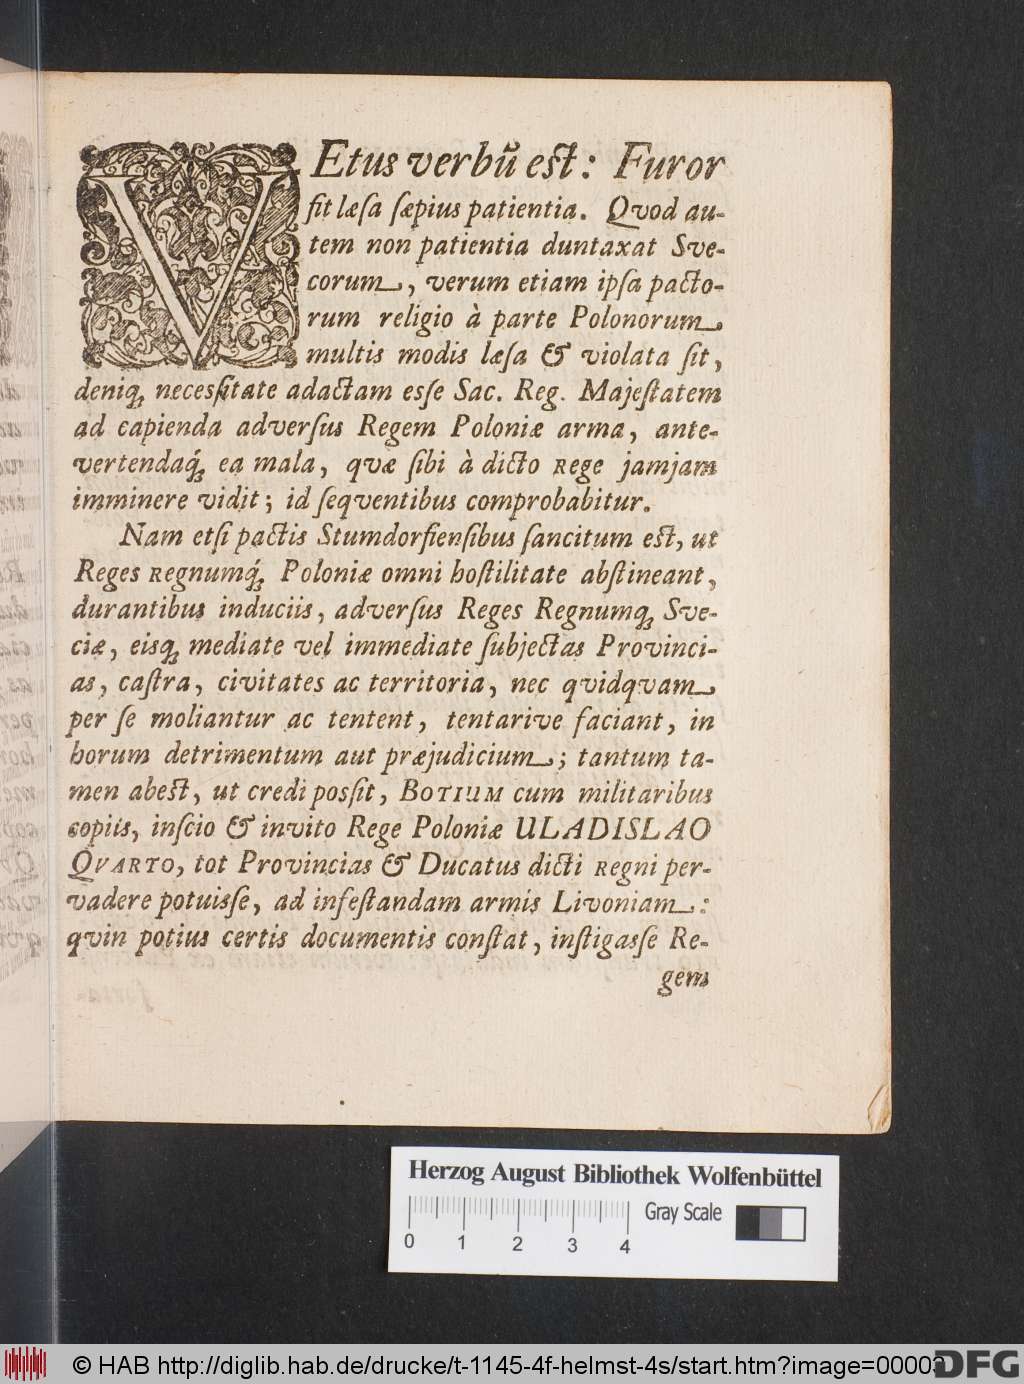 VEtus verbũ est: Furor
fit læſa ſæpius patientia. Qvod au-
tem non patientia duntaxat Sve-
corum, verum etiam ipſa pacto-
rum religio à parte Polonorum
multis modis læſa & violata ſit,
deniq; neceſſitate adactam eſſe Sac. Reg. Majeſtatem
ad capienda adverſus Regem Poloniæ arma, ante-
vertendaq́; ea mala, qvæ ſibi à dicto Rege jamjam
imminere vidit; id ſeqventibus comprobabitur.
Nam etſi pactis Stumdorfienſibus ſancitum eſt, ut
Reges Regnumq́; Poloniæ omni hoſtilitate abſtineant,
durantibus induciis, adverſus Reges Regnumq; Sve-
ciæ, eisq; mediate vel immediate ſubjectas Provinci-
as, caſtra, civitates ac territoria, nec qvidqvam
per ſe moliantur ac tentent, tentarive faciant, in
horum detrimentum aut præjudicium; tantum ta-
men abeſt, ut credi poſſit, BOTIUM cum militaribus
copiis, inſcio & invito Rege Poloniæ ULADISLAO
QVARTO, tot Provincias & Ducatus dicti Regni per-
vadere potuiſſe, ad infeſtandam armis Livoniam:
qvin potius certis documentis conſtat, inſtigaſſe Re-
gem
Herzog August Bibliothek Wolfenbüttel
Gray Scale
0 1 2 3 4
© HAB http://diglib.hab.de/drucke/t-1145-4f-helmst-4s/start.htm?image=00003
DFG